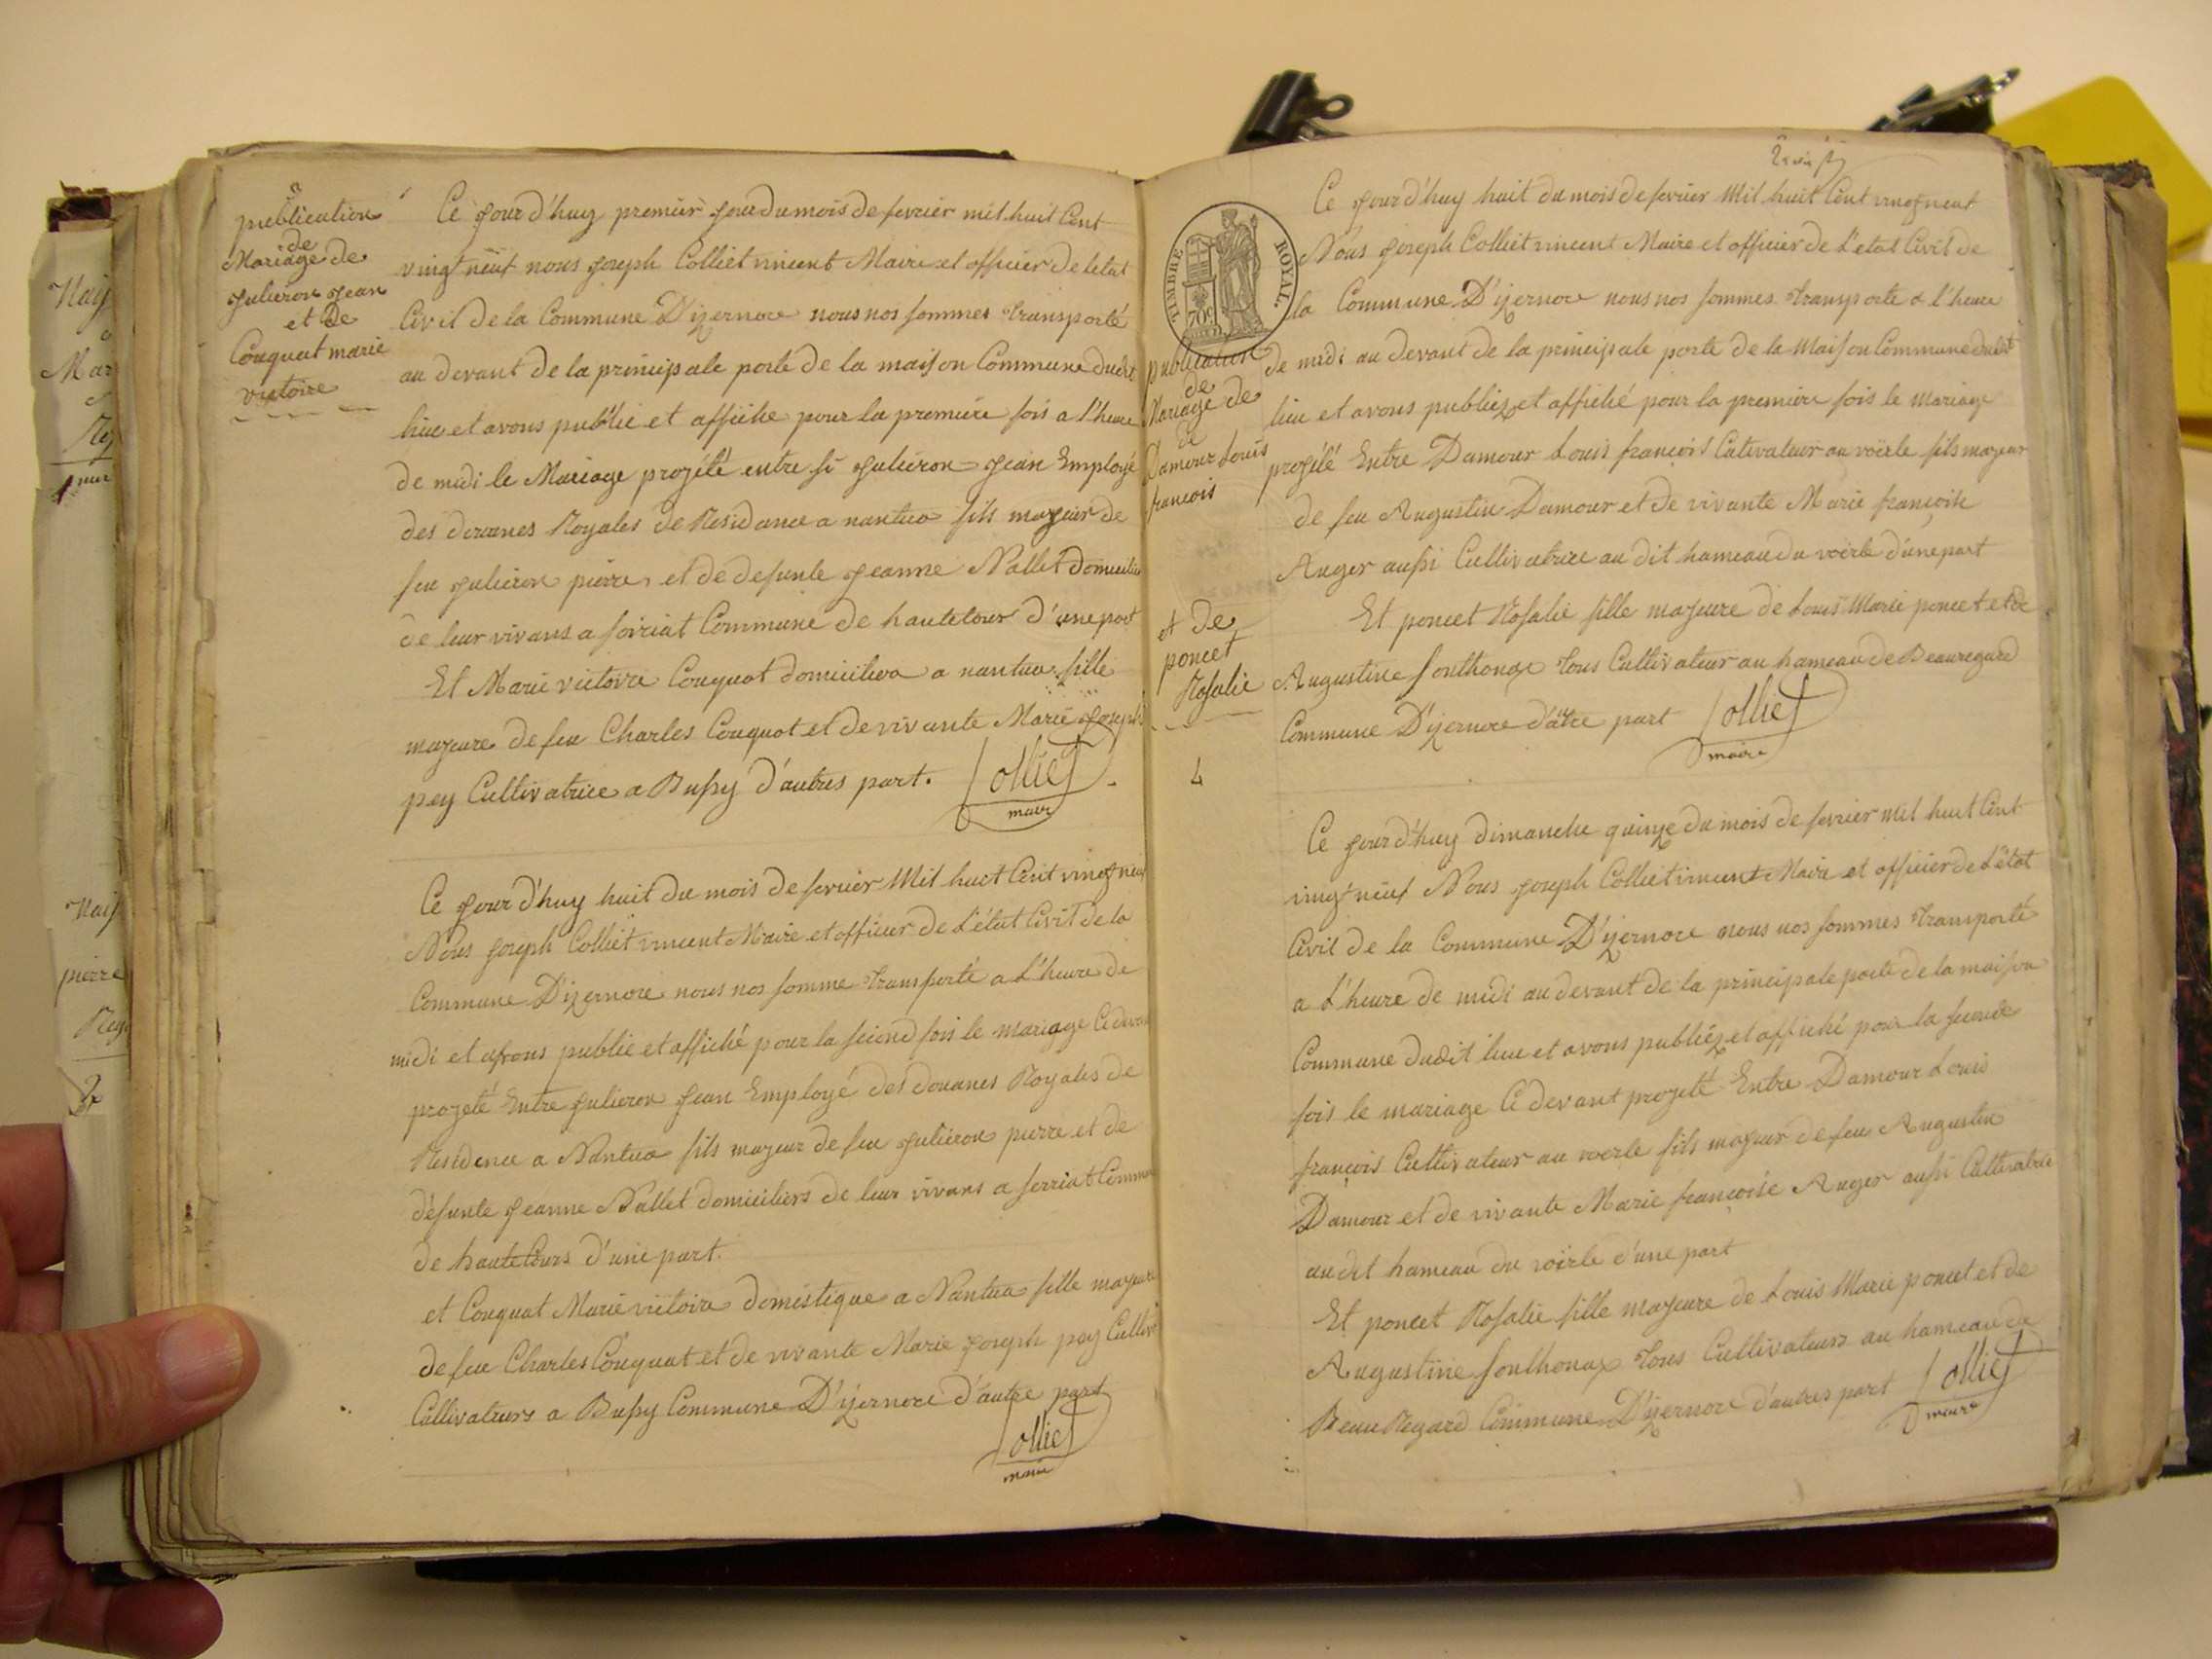 publication
de
Mariage de
Julieron Jean
et De
Couquat marie
victoire
Ce jourd'huy premier jour du mois de fevrier mil huit Cent
vingt neuf nous joseph Colliet vincent Maire et officier de letat
Civil de la Commune D'izernore nous nos sommes transporté
au devant de la principale porte de la maison Commune dudit
lieu et avons publié et affiché pour la premiere fois a l'heure
de midi le Mariage projété entre si Julieron Jean Employé
des douanes Royales de Residance a nantua fils majeur de
feu Julieron pierre, et de defunte Jeanne Nallet domicilié
de leur vivans a soiriat Commune de hautetour d'une part
Et Marie victoire Couquat domicilica a nantua fille
majeure de feu Charles Couquat et de vivante Marie Joseph
pey Cultivatrice a Bussy d'autres part. Colliet
maire
Ce jourd'huy huit du mois de fevrier Mil huit Cent vingt neuf
Nous joseph Colliet vincent Maire et officier de L'état Civil de la
Commune D'izernore nous nos somme transporté a L'heure de
midi et avons publié et affiché pour la second fois le mariage Ci devant
projeté Entre Julieron Jean Employé des douanes Royales de
Residence a Nantua fils majeur de feu Julieron pierre et de
défunte Jeanne Nallet domiciliers de leur vivans a serriat Commune
de hautetours d'une part.
et Couquat Marie victoire domestique a Nantua fille majeure
de feu Charles Couquat et de vivante Marie Joseph pey Cultiv
Cultivateurs a Bussy Commune D'izernore d'autre part
Colliet
maire
TIMBRE ROYAL.
70c
publication
de
Mariage de
de
Damour Louis
francois
et De
poncet
Rosalie
4
Ce jourd'huy huit du mois de fevrier Mil huit Cent vingt neuf
Nous Joseph Colliet vincent Maire et officier de L'etat Civil de
la Commune D'izernore nous nos sommes transporté a l'heure
de midi au devant de la principale porte de la Maison Commune dudit
lieu et avons publiez et affiché pour la premiere fois le mariage
projété Entre Damour Louis francois Cutivateur au voërle fils majeur
de feu Augustin Damour et de vivante Marie francoise
Auger aussi Cultivatrice au dit hameau du voërle d'une part
Et poncet Rosalie fille majeure de Louis Marie poncet et de
Augustine Sonthonax tous Cultivateur au hameau de Beauregard
Commune D'izernore d'atre part Colliet
maire
Ce jourd'huy dimanche quinze du mois de fevrier mil huit Cent
vingt neuf Nous joseph Colliet vincent Maire et officier de L'état
Civil de la Commune D'izernore nous nos sommes transporté
a L'heure de midi au devant de la principale porte de la maison
Commune dudit lieu et avons publiéz et affiché pour la seconde
fois le mariage Ci devant projeté Entre Damour Louis
françois Cultivateur au voerle fils majeur de feu Augustin
Damour et de vivante Marie françoise Auger aussi Cultivatrice
audit hameau du voërle d'une part
Et poncet Rosalie fille majeure de Louis Marie poncet et de
Augustine Sonthonax tous Cultivateurs au hameau de
Beau Regard Commune D'izernore d'autres part Colliet
maire